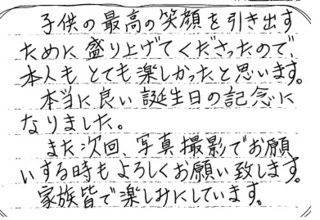 子供の最高の笑顔を引き出す
ために盛り上げてくださったので、
本人もとても楽しかったと思います。
本当に良い誕生日の記念に
なりました。
また次回、写真撮影でお願
いする時もよろしくお願い致します。
家族皆で楽しみにしています。